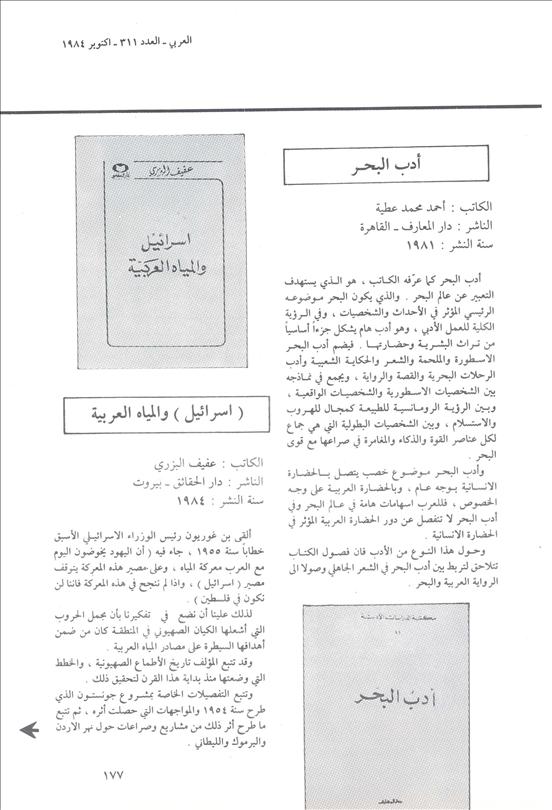 العربي - العدد ٣١١ - اكتوبر ١٩٨٤
أدب البحر
الكاتب : أحمد محمد عطية
الناشر : دار المعارف - القاهرة
سنة النشر : ١٩٨١
أدب البحر كما عرّفه الكاتب ، هو الذي يستهدف
التعبير عن عالم البحر . والذي يكون البحر موضوعه
الرئيسي المؤثر في الأحداث والشخصيات ، وفي الرؤية
الكلية للعمل الأدبي ، وهو أدب هام يشكل جزءاً أساسياً
من تراث البشرية وحضارتها . فيضم أدب البحر
الاسطورة والملحمة والشعر والحكاية الشعبية وأدب
الرحلات البحرية والقصة والرواية ، ويجمع في نماذجه
بين الشخصيات الاسطورية والشخصيات الواقعية ،
وبين الرؤية الرومانسية للطبيعة كمجال للهروب
والاستسلام ، وبين الشخصيات البطولية التي هي جماع
لكل عناصر القوة والذكاء والمغامرة في صراعها مع قوى
البحر .
وأدب البحر موضوع خصب يتصل بالحضارة
الانسانية بوجه عام ، وبالحضارة العربية على وجه
الخصوص ، فللعرب اسهامات هامة في عالم البحر وفي
أدب البحر لا تنفصل عن دور الحضارة العربية المؤثر في
الحضارة الانسانية .
وحول هذا النوع من الأدب فان فصول الكتاب
تتلاحق لتربط بين أدب البحر في الشعر الجاهلي وصولا الى
الرواية العربية والبحر .
مكتبة الدراسات الأدبية
أدب البحر
دار المعارف
عفيف البزري
اسرائيل
والمياه العربية
( اسرائيل ) والمياه العربية
الكاتب : عفيف البزري
الناشر : دار الحقائق - بيروت
سنة النشر : ١٩٨٤
ألقى بن غوريون رئيس الوزراء الاسرائيلي الأسبق
خطاباً سنة ١٩٥٥ ، جاء فيه ( أن اليهود يخوضون اليوم
مع العرب معركة المياه ، وعلى مصير هذه المعركة يتوقف
مصير ( اسرائيل ) ، واذا لم ننجح في هذه المعركة فاننا لن
نكون في فلسطين ) .
لذلك علينا أن نضع في تفكيرنا بأن مجمل الحروب
التي أشعلها الكيان الصهيوني في المنطقة كان من ضمن
أهدافها السيطرة على مصادر المياه العربية .
وقد تتبع المؤلف تاريخ الأطماع الصهيونية ، والخطط
التي وضعتها منذ بداية هذا القرن لتحقيق ذلك .
وتتبع التفصيلات الخاصة بمشروع جونستون الذي
طرح سنة ١٩٥٤ والمواجهات التي حصلت أثره ، ثم تتبع
ما طرح أثر ذلك من مشاريع وصراعات حول نهر الاردن
واليرموك والليطاني .
١٧٧